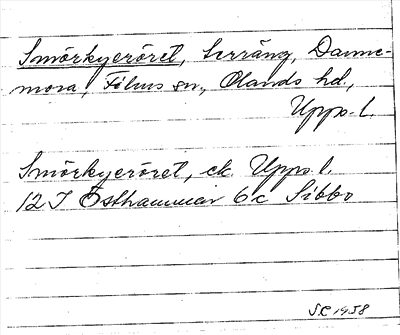 Smörkyeröret, terräng, Danne-
mora, Films sn., Olands hd,
Upps. l.
Smörkyeröret, ek Upps. l.
12 I Östhammar 6c Sibbo
SC 1958